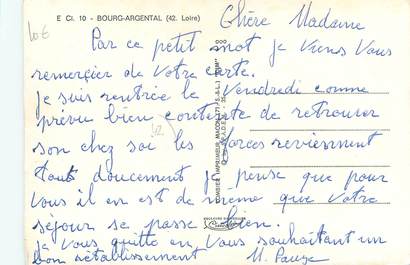 E Cl. 10 - BOURG-ARGENTAL (42. Loire)
10€
Chère Madame
Par ce petit mot je viens vous
remercier de votre carte.
je suis rentrée le Vendredi comme
prévu bien contente de retrouver
son chez soi les forces reviennent
tout doucement je pense que pour
vous il en est de même que votre
séjour se passe bien.
je vous quitte en vous souhaitant un
bon rétablissement
42
COMBIER IMPRIMEUR MACON (71-S.&-L.)